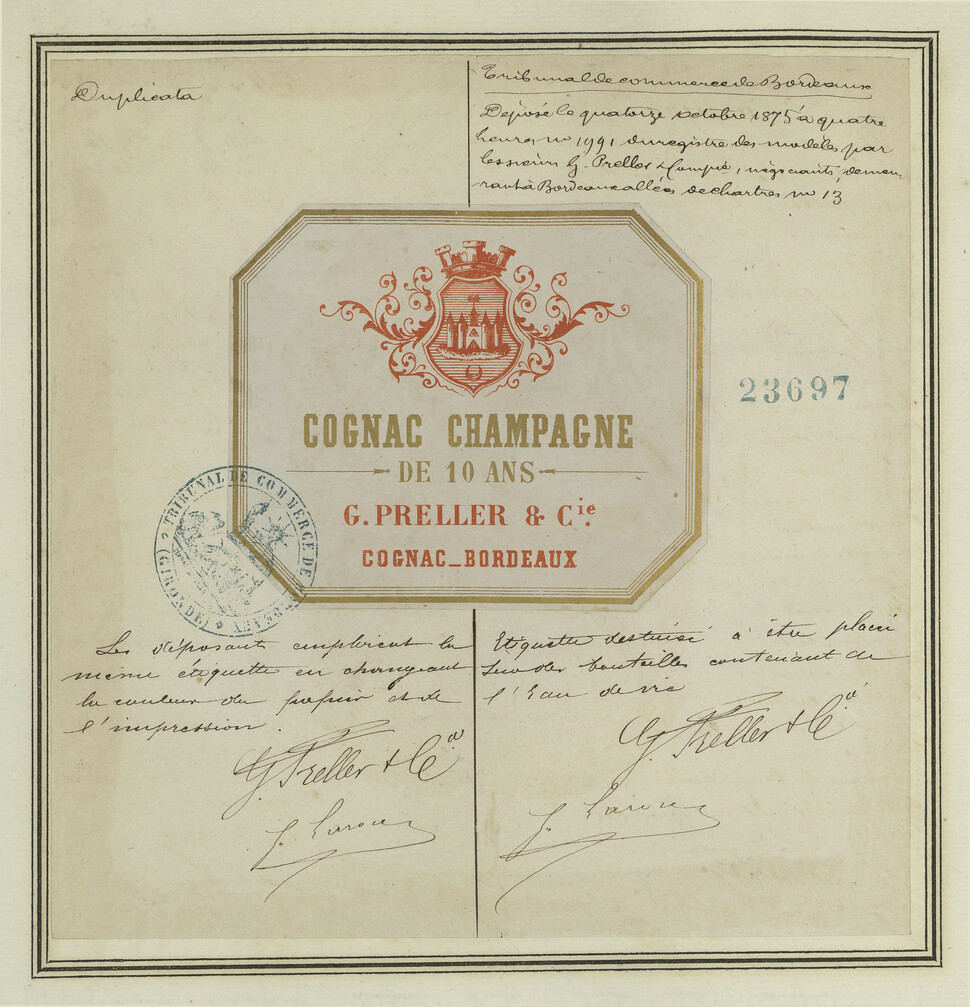 Duplicata
Tribunal de commerce de Bordeaux
Déposé le quatorze octobre 1875 à quatre
heures no 1991 du registre des modèles par
les sieurs G. Preller & Compie, négociants, demeu-
rant à Bordeaux allées de chartres no 13
COGNAC CHAMPAGNE
DE 10 ANS
G. PRELLER & Cie.
COGNAC_BORDEAUX
23697
TRIBUNAL DE COMMERCE DE BORDEAUX
(GIRONDE)
Les déposants emploient la
même étiquette en changeant
la couleur du papier et de
l'impression.
G. Preller & Cie
Etiquette destinée à être placée
sur des bouteilles contenant de
l'Eau de vie
G. Preller & Cie